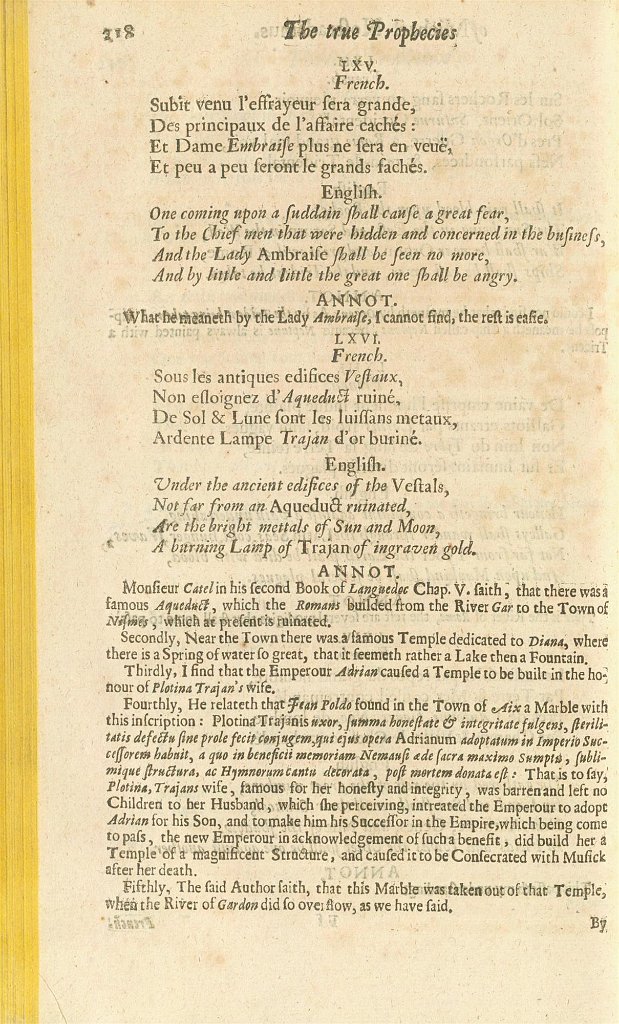 218 The true Prophecies
LXV.
French.
Subit venu l'effrayeur ſera grande,
Des principaux de l'affaire cachés :
Et Dame Embraiſe plus ne ſera en veuë,
Et peu a peu ſeront le grands fachés.
Engliſh.
One coming upon a ſuddain ſhall cauſe a great fear,
To the Chief men that were hidden and concerned in the buſineſs,
And the Lady Ambraiſe ſhall be ſeen no more,
And by little and little the great one ſhall be angry.
ANNOT.
What he meaneth by the Lady Ambraiſe, I cannot find, the reſt is eaſie.
LXVI.
French.
Sous les antiques edifices Veſtaux,
Non eſloignez d'Aqueduct ruiné,
De Sol & Lune ſont les luiſſans metaux,
Ardente Lampe Trajan d'or buriné.
Engliſh.
Under the ancient edifices of the Veſtals,
Not far from an Aqueduct ruinated,
Are the bright mettals of Sun and Moon,
A burning Lamp of Trajan of ingraven gold.
ANNOT.
Monſieur Catel in his ſecond Book of Languedoc Chap. V. ſaith, that there was a
famous Aqueduct, which the Romans builded from the River Gar to the Town of
Niſmes, which at preſent is ruinated.
Secondly, Near the Town there was a famous Temple dedicated to Diana, where
there is a Spring of water ſo great, that it ſeemeth rather a Lake then a Fountain.
Thirdly, I find that the Emperour Adrian cauſed a Temple to be built in the ho-
nour of Plotina Trajan's wife.
Fourthly, He relateth that Jean Poldo found in the Town of Aix a Marble with
this inſcription : Plotina Trajanis uxor, ſumma honeſtate & integritate fulgens, ſterili-
tatis defectu ſine prole fecit conjugem, qui ejus opera Adrianum adoptatum in Imperio Suc-
ceſſorem habuit, a quo in beneficii memoriam Nemauſi æde ſacra maximo Sumptu, ſubli-
mique ſtructura, ac Hymnorum cantu decorata, poſt mortem donata eſt : That is to ſay,
Plotina, Trajans wife, famous for her honeſty and integrity, was barren and left no
Children to her Husband, which ſhe perceiving, intreated the Emperour to adopt
Adrian for his Son, and to make him his Succeſſor in the Empire, which being come
to paſs, the new Emperour in acknowledgement of ſuch a benefit, did build her a
Temple of a magnificent Structure, and cauſed it to be Conſecrated with Muſick
after her death.
Fifthly, The ſaid Author ſaith, that this Marble was taken out of that Temple,
when the River of Gardon did ſo overflow, as we have ſaid.
By